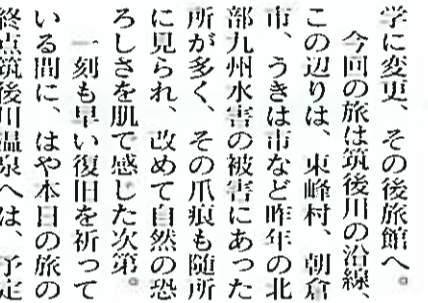 学に変更、その後旅館へ。
今回の旅は筑後川の沿線
この辺りは、東峰村、朝倉
市、うきは市など昨年の北
部九州水害の被害にあった
所が多く、その爪痕も随所
に見られ、改めて自然の恐
ろしさを肌で感じた次第。
一刻も早い復旧を祈って
いる間に、はや本日の旅の
終点筑後川温泉へは、予定